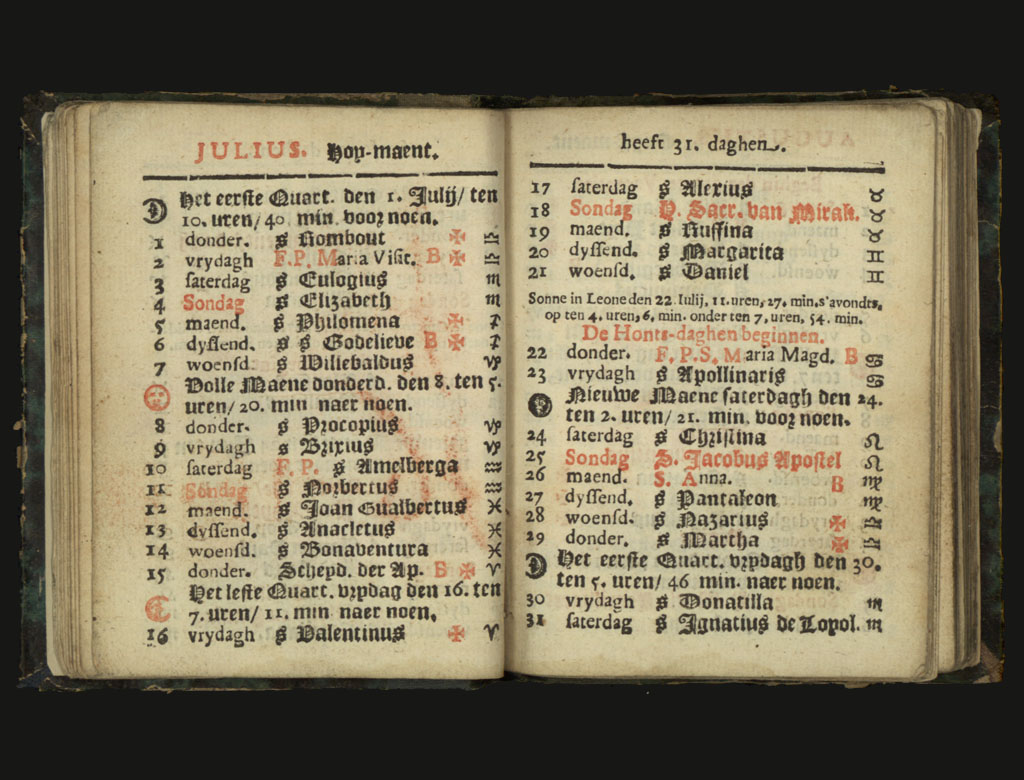 JULIUS. Hoy-maent.
Het eerste Quart. den 1. Julij/ ten
10. uren/ 40 min. voor noen.
1 donder. S Rombout ♎
2 vrydagh F.P. Maria Visit. B ✠ ♎
3 saterdag S Eulogius ♏
4 Sondag S Elizabeth ♏
5 maend. S Philomena ✠ ♐
6 dyssend. S Godelieve B ✠ ♐
7 woensd. S Willebaldus ♑
Volle Maene donderd. den 8. ten 5.
uren/ 20. min naer noen.
8 donder. S Procopius ♑
9 vrydagh S Brixius ♑
10 saterdag F. P. S Amelberga ♒
11 Sondag S Norbertus ♒
12 maend. S Joan Gualbertus ♓
13 dyssend. S Anacletus ♓
14 woensd. S Bonaventura ♓
15 donder. Scheyd. der Ap. B ✠ ♈
Het leste Quart. vrydag den 16. ten
7. uren/ 11. min naer noen.
16 vrydagh S Valentinus ✠ ♈
heeft 31. daghen.
17 saterdag S Alexius ♉
18 Sondag H. Sacr. van Mirak. ♉
19 maend. S Ruffina ♉
20 dyssend. S Margarita ♊
21 woensd. S Daniel ♊
Sonne in Leone den 22. Iulij, 11. uren, 27. min. s'avondts,
op ten 4. uren, 6. min. onder ten 7. uren, 54. min.
De Honts-daghen beginnen.
22 donder. F. P. S. Maria Magd. B ♋
23 vrydagh S Apollinaris ♋
Nieuwe Maene saterdagh den 24.
ten 2. uren/ 21. min. voor noen.
24 saterdag S Christina ♌
25 Sondag S. Jacobus Apostel ♌
26 maend. S. Anna. B ♍
27 dyssend. S Pantaleon ♍
28 woensd. S Nazarius ✠ ♎
29 donder. S Martha ✠ ♎
Het eerste Quart. vrydagh den 30.
ten 5. uren/ 46 min. naer noen.
30 vrydagh S Donatilla ♏
31 saterdag S Ignatius de Loyol. ♏